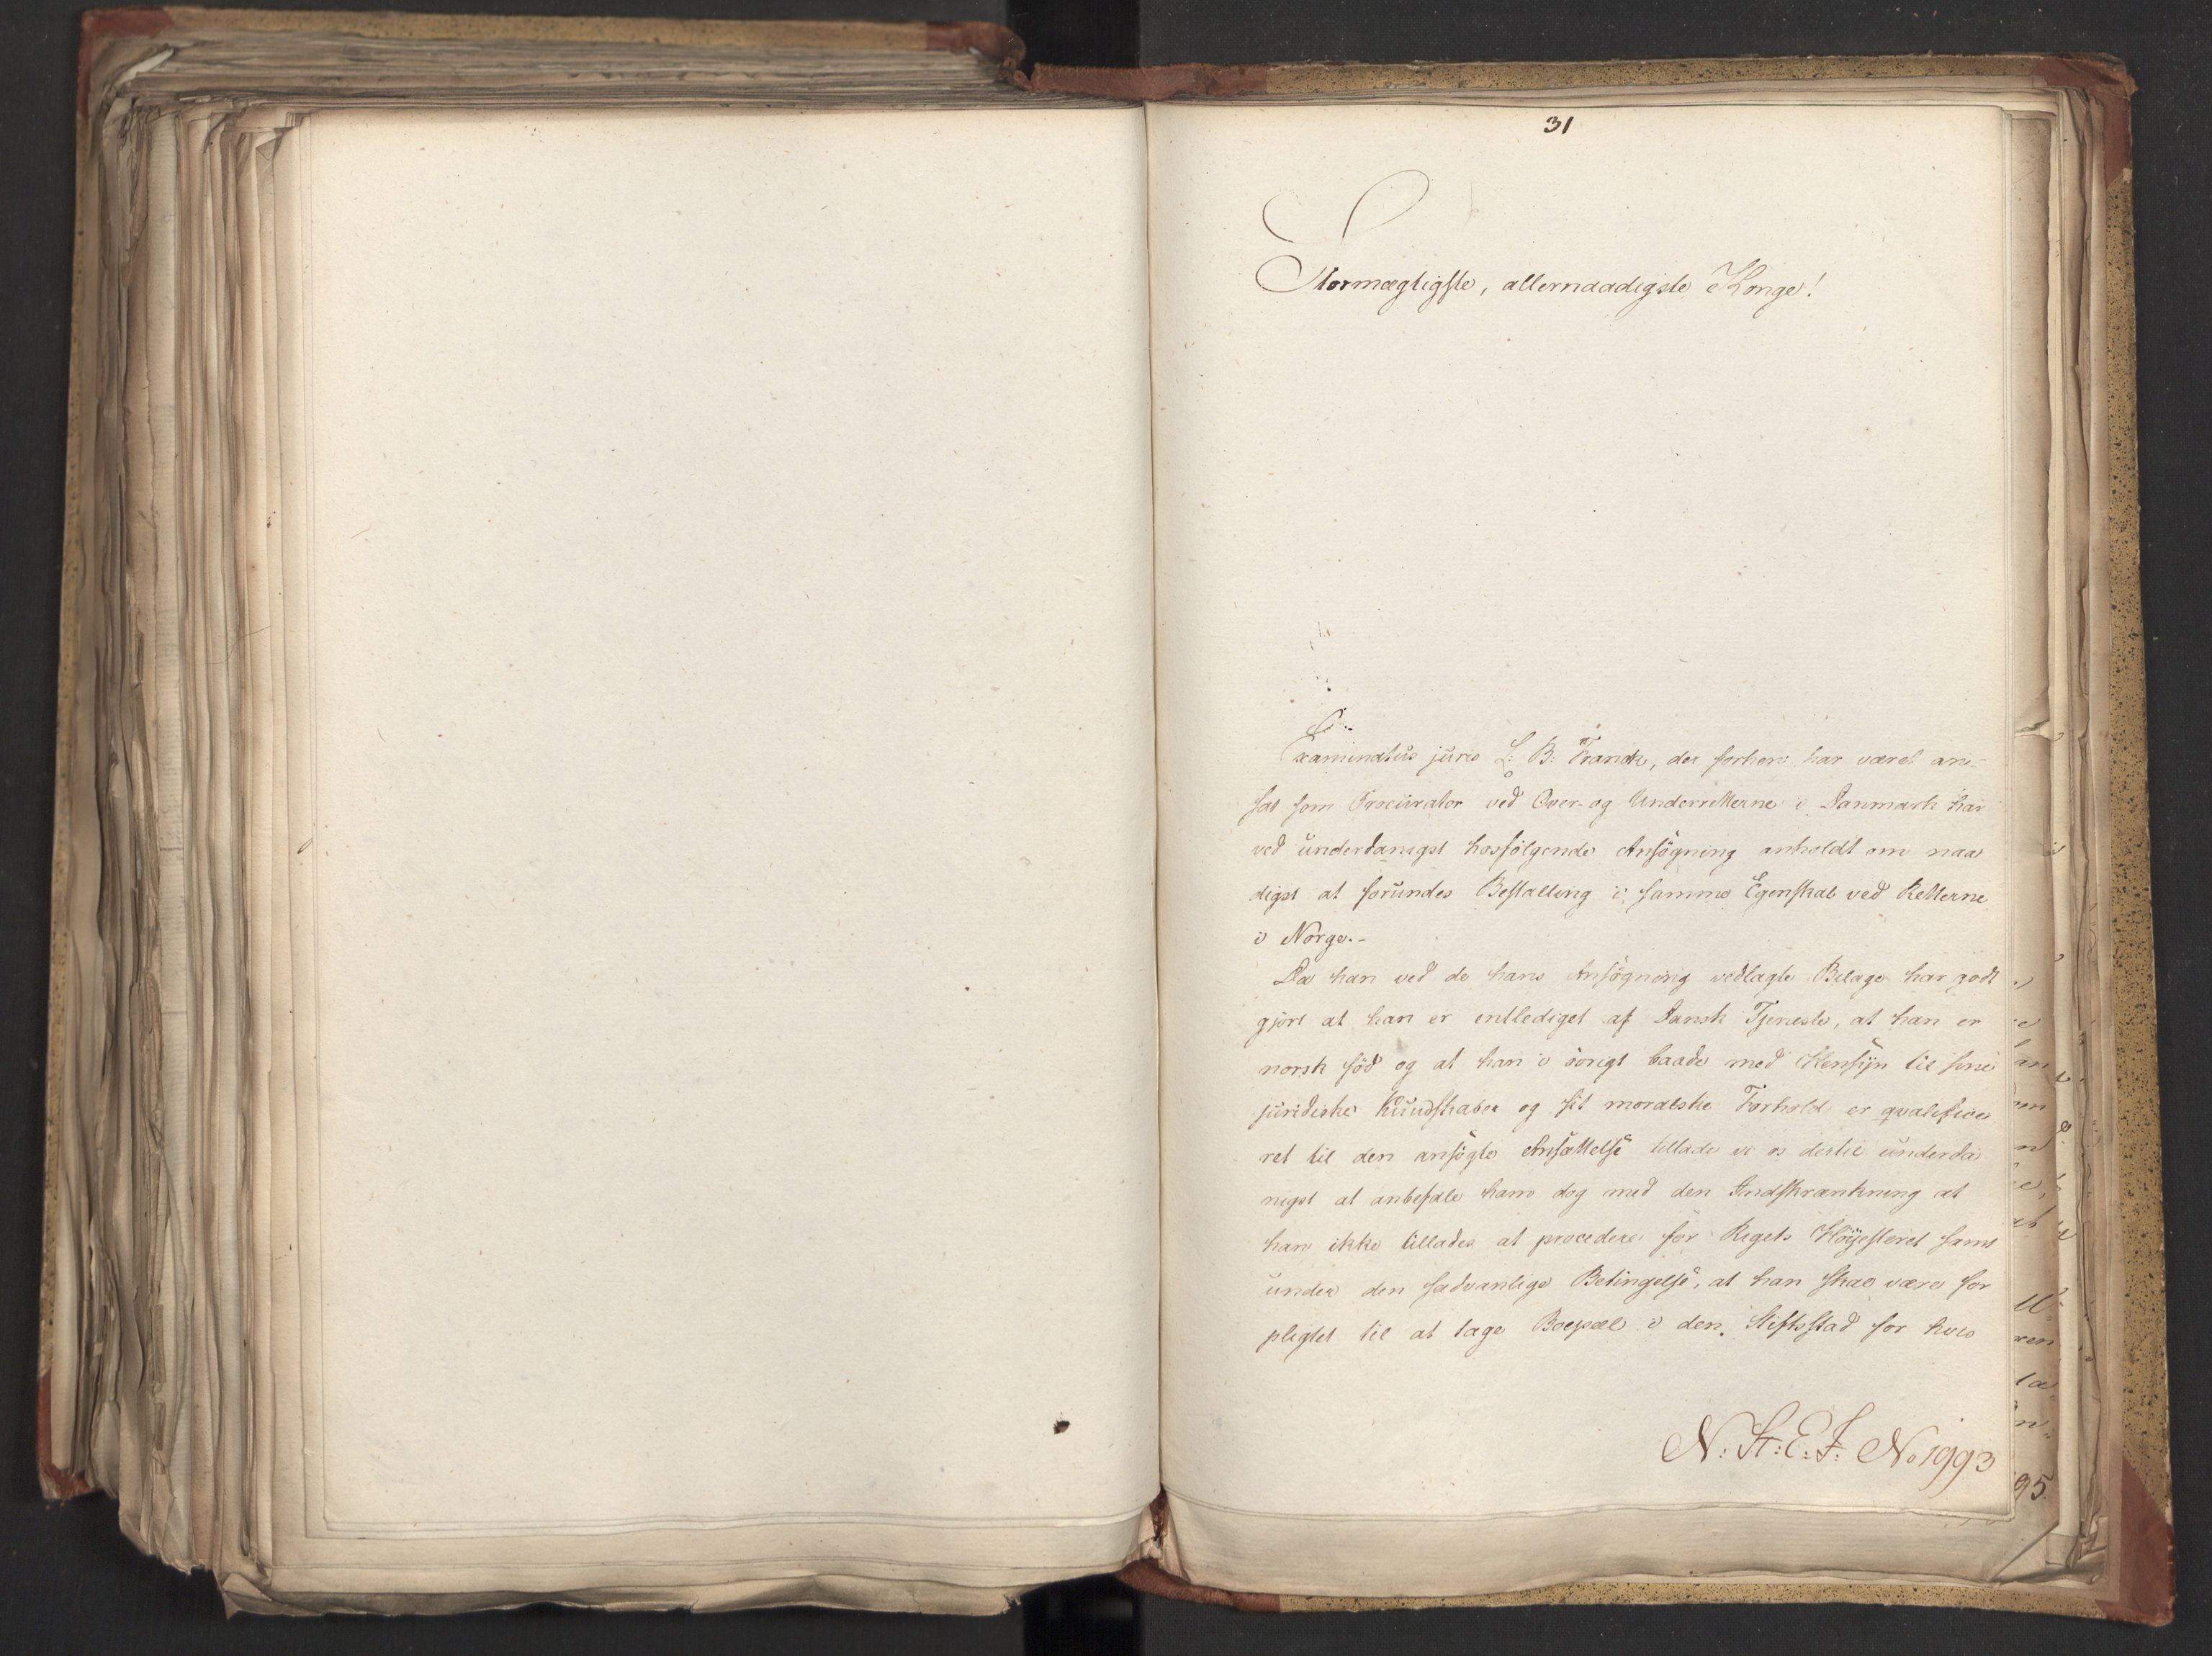 31
Stormægtigste, allernaadigste Konge!
Examinatus juris L: B: Franck, der forhen har været an-
sat som Procurator ved Over- og Underretterne i Danmark har
ved underdanigst hosfölgende Ansögning anholdt om naa
digst at forundes Bestalling i samme Egenskab ved Retterne
i Norge.-
Da han ved de hans Ansögning vedlagte Bilage har godt
gjört at han er entlediget af Dansk Tjeneste, at han er
norsk föd og at han i övrigt baade med Hensÿn til sine
juridiske Kundskaber og sit moralske Forhold er qvalifice
ret til den ansögte Ansættelse tillade vi os dertil underda
nigst at anbefale ham dog med den Indskrænkning at
han ikke tillades at procedere for Rigets Höÿesteret samt
under den sædvanlige Betingelse, at han skal være for
pligtet til at tage Boepæl i den Stiftsstad for hvis
N: St: E: J: No 1993
95.